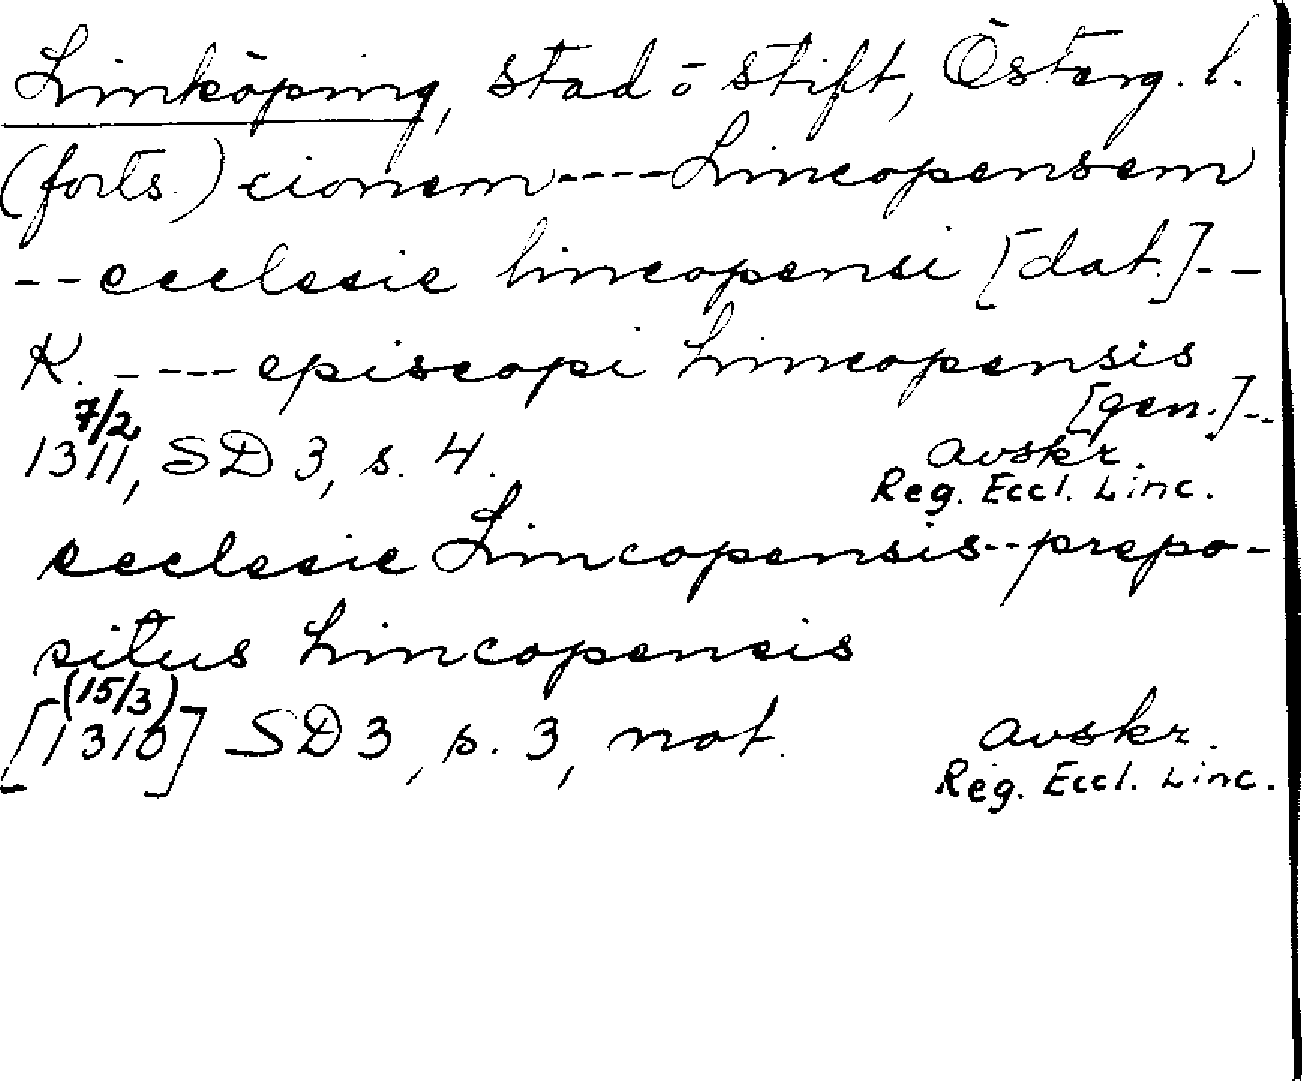 Linköping, stad ō stift, Österg. l.
(forts.) cionem ---- Lincopensem
-- ecclesie lincopensi [dat.] --
K. ---- episcopi Lincopensis
[gen.] --
7/2
1311, SD 3, s. 4. avskr.
Reg. Eccl. Linc.
ecclesie Lincopensis -- prepo-
situs Lincopensis
(15/3)
[1310] SD 3, s. 3, not. avskr.
Reg. Eccl. Linc.